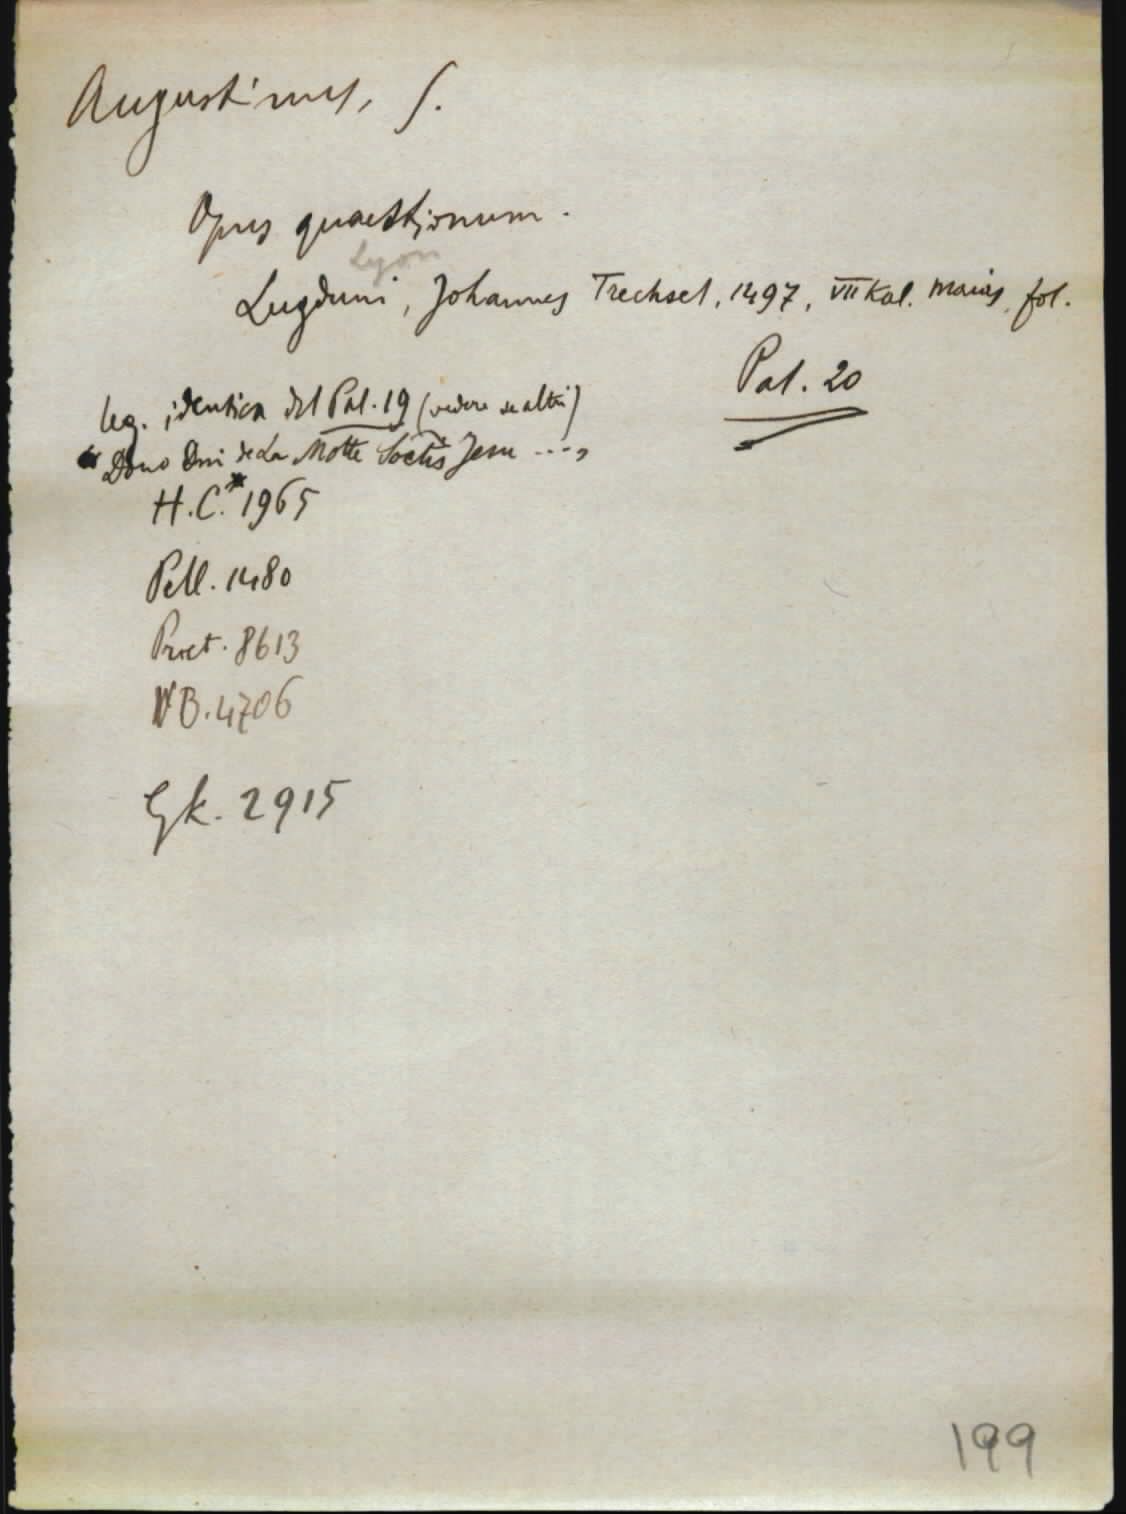 Augustinus, S.
Opus quaestionum.
Lyon
Lugduni, Johannes Trechsel, 1497, VII Kal. maias, fol.
Pal. 20
leg. identica del Pal. 19 (vedere se altri)
"Dono Dni de La Motte Soctis Jesu ...,
H.C.* 1965
Pell. 1480
Proct. 8613
VB. 4706
Gk. 2915
199